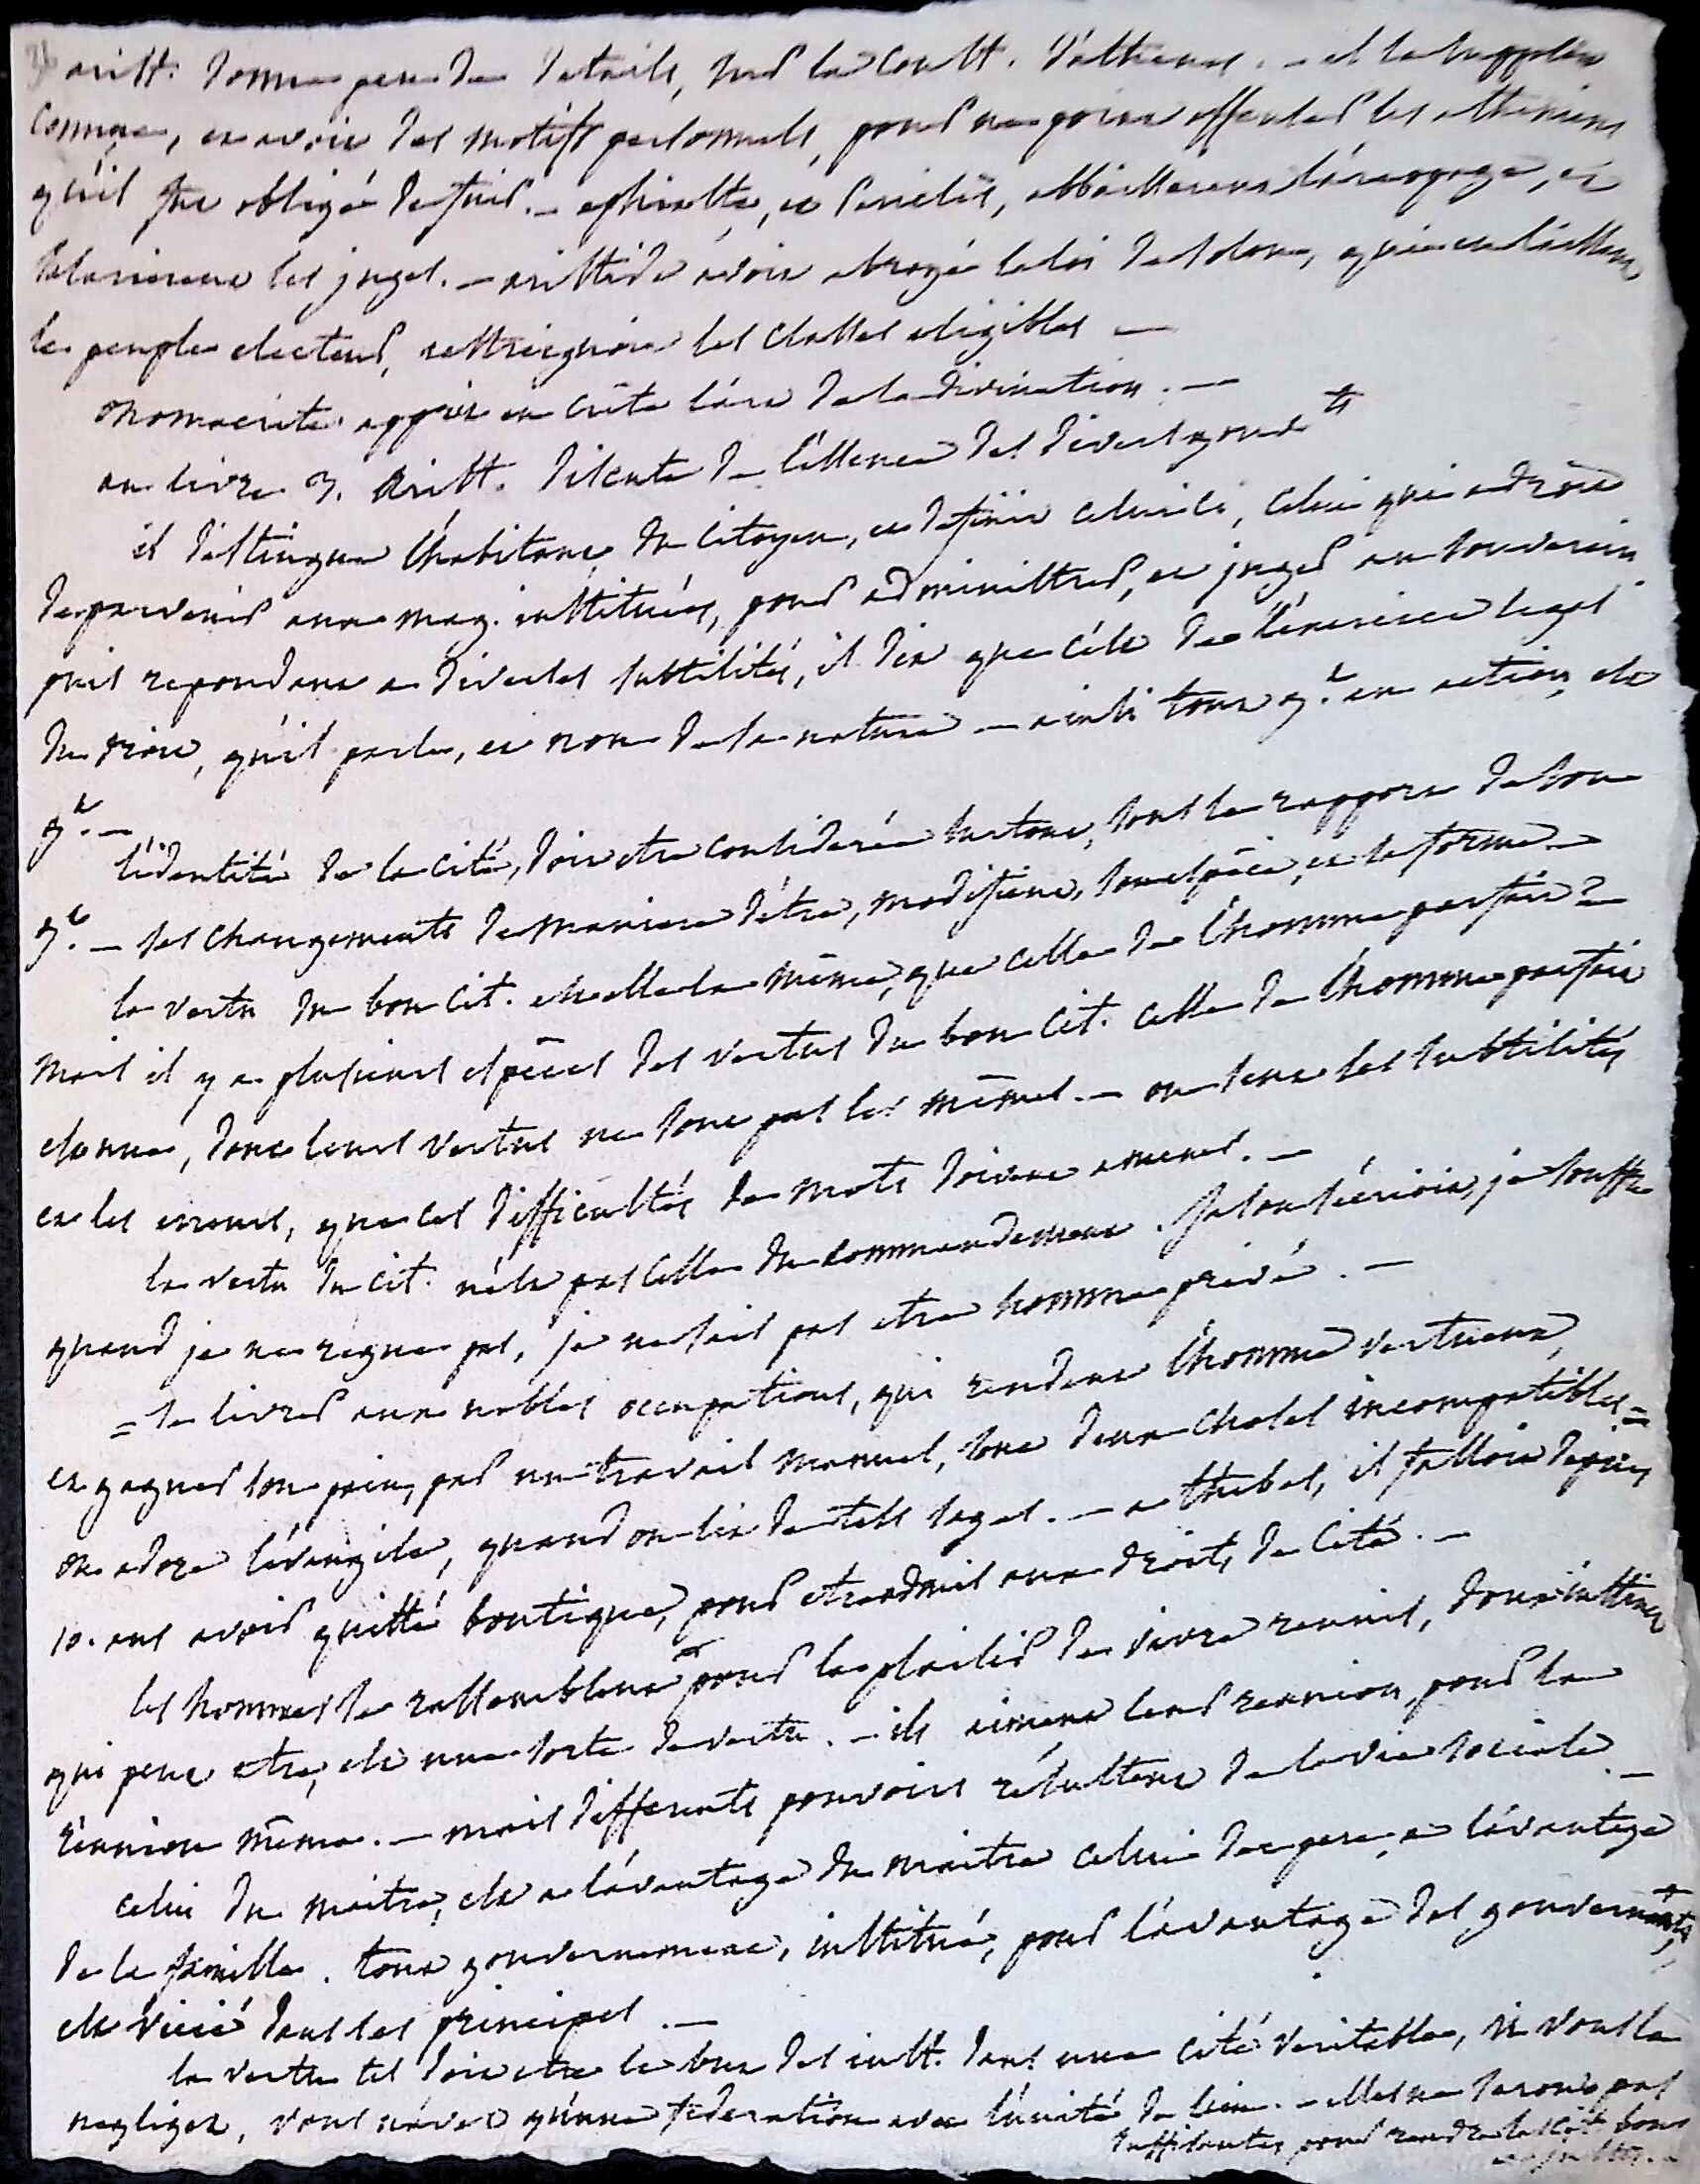 arist. donne peu de details, sur la const. d'athenes. - et la suppose
connue, et avoir des motifs personnels, pour ne point offenser les atheniens
qu'il fut obligé de fuir. - ephialte, et Pericles, abbaisserent l'areopage, et
salarierent les juges. - aristide avoit abrogé la loi de Solon, qui en laissant
le peuple electeur, restreignoit les classes eligibles -
onomacrite apprit en crête l'art de la divination. -
au livre 3. Arist. discute de l'essence des divers gouv.ts
il distingue l'habitant, du citoyen, et definit celui ci, celui qui a droit
de parvenir aux mag. institués, pour administrer, et juger au souverain
puis repondant a diverses subtilités, il dit que c'est de l'exercice legal
du droit, qu'il parle, et non de sa nature - ainsi tout g.t en action, est
g.t -
l'identité de la cité, doit etre considerée surtout, sous le rapport de son
g.t - les changements de maniere d'être, modifient, son espèce, et sa forme -
la vertu du bon cit. est elle la même, que celle de l'homme parfait? -
mais il y a plusieurs espèces des vertus du bon cit. celle de l'homme parfait
est une, donc leurs vertus ne sont pas les mêmes. - on sent les subtilités
et les erreurs, que ces difficultés de mots doivent amener. -
la vertu du cit. n'est pas celle du commandement. Jason s'écrioit, je souffre
quand je ne regne pas, je ne sais pas etre homme privé. -
= se livrer aux nobles occupations, qui rendent l'homme vertueux,
et gagner son pain, par un travail manuel, sont deux choses incompatibles =
on adore l'évangile, quand on lit de tels sages. - a thebes, il falloit depuis
10. ans avoir quitté boutique, pour etre admis aux droits de cité. -
les hommes se rassemblent pour le plaisir de vivre reunis, doux instinct
qui peut etre, est une sorte de vertu. - ils aiment leur reunion, pour la
réunion même. - mais differents pouvoirs résultent de la vie sociale. -
celui du maitre, est a l'avantage du maitre celui du pere, a l'avantage
de la famille. tout gouvernement, institué, pour l'avantage des gouvernants,
est vicié dans ses principes. -
la vertu tel doit etre le but des inst. dans une cité veritable, si vous la
negligez, vous n'avez qu'une federation avec l'unité de lieu. - elles ne seront pas
suffisantes, pour rendre les cit. bons
et justes. -